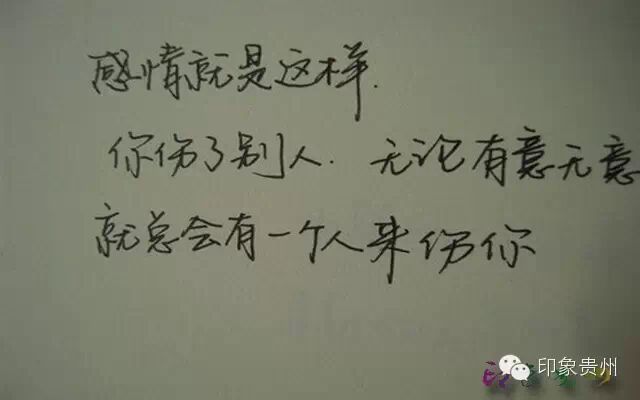 感情就是这样.
你伤了别人. 无论有意无意
就总会有一个人来伤你
印象贵州